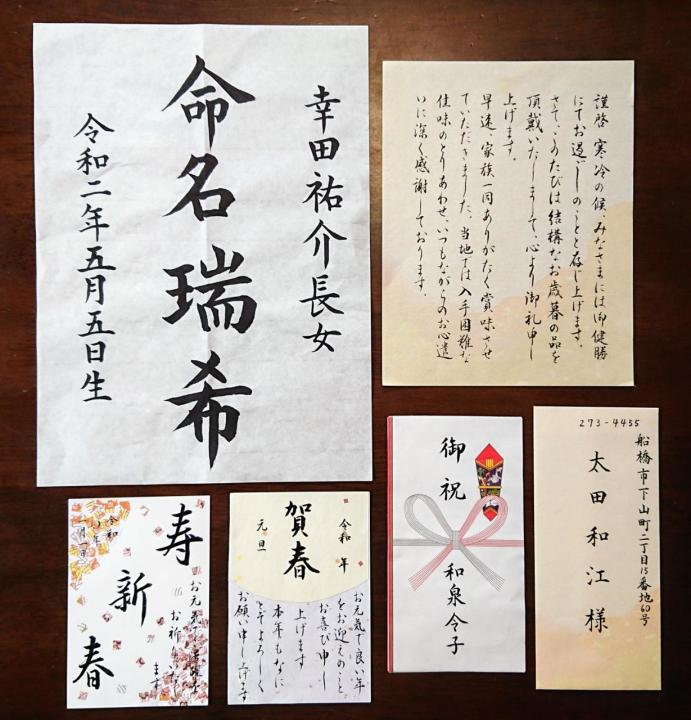 幸田祐介長女
命名瑞希
令和二年五月五日生
謹啓 寒冷の候、みなさまには御健勝
にてお過ごしのことと存じ上げます。
さて、このたびは結構なお歳暮の品を
頂戴いたしまして、心より御礼申し
上げます。
早速、家族一同ありがたく賞味させ
ていただきました。当地では入手困難な
佳味のとりあわせ、いつもながらのお心遣
いに深く感謝しております。
寿
新
春
お元気で
お祈りいたし
ます
令和
賀春
令和 年
元旦
お元気で良い年
をお迎えのこと
お喜び申し
上げます
本年もなに
とぞよろしく
お願い申し上げます
御祝
和泉令子
273-4455
船橋市下山町二丁目15番地60号
太田和江様